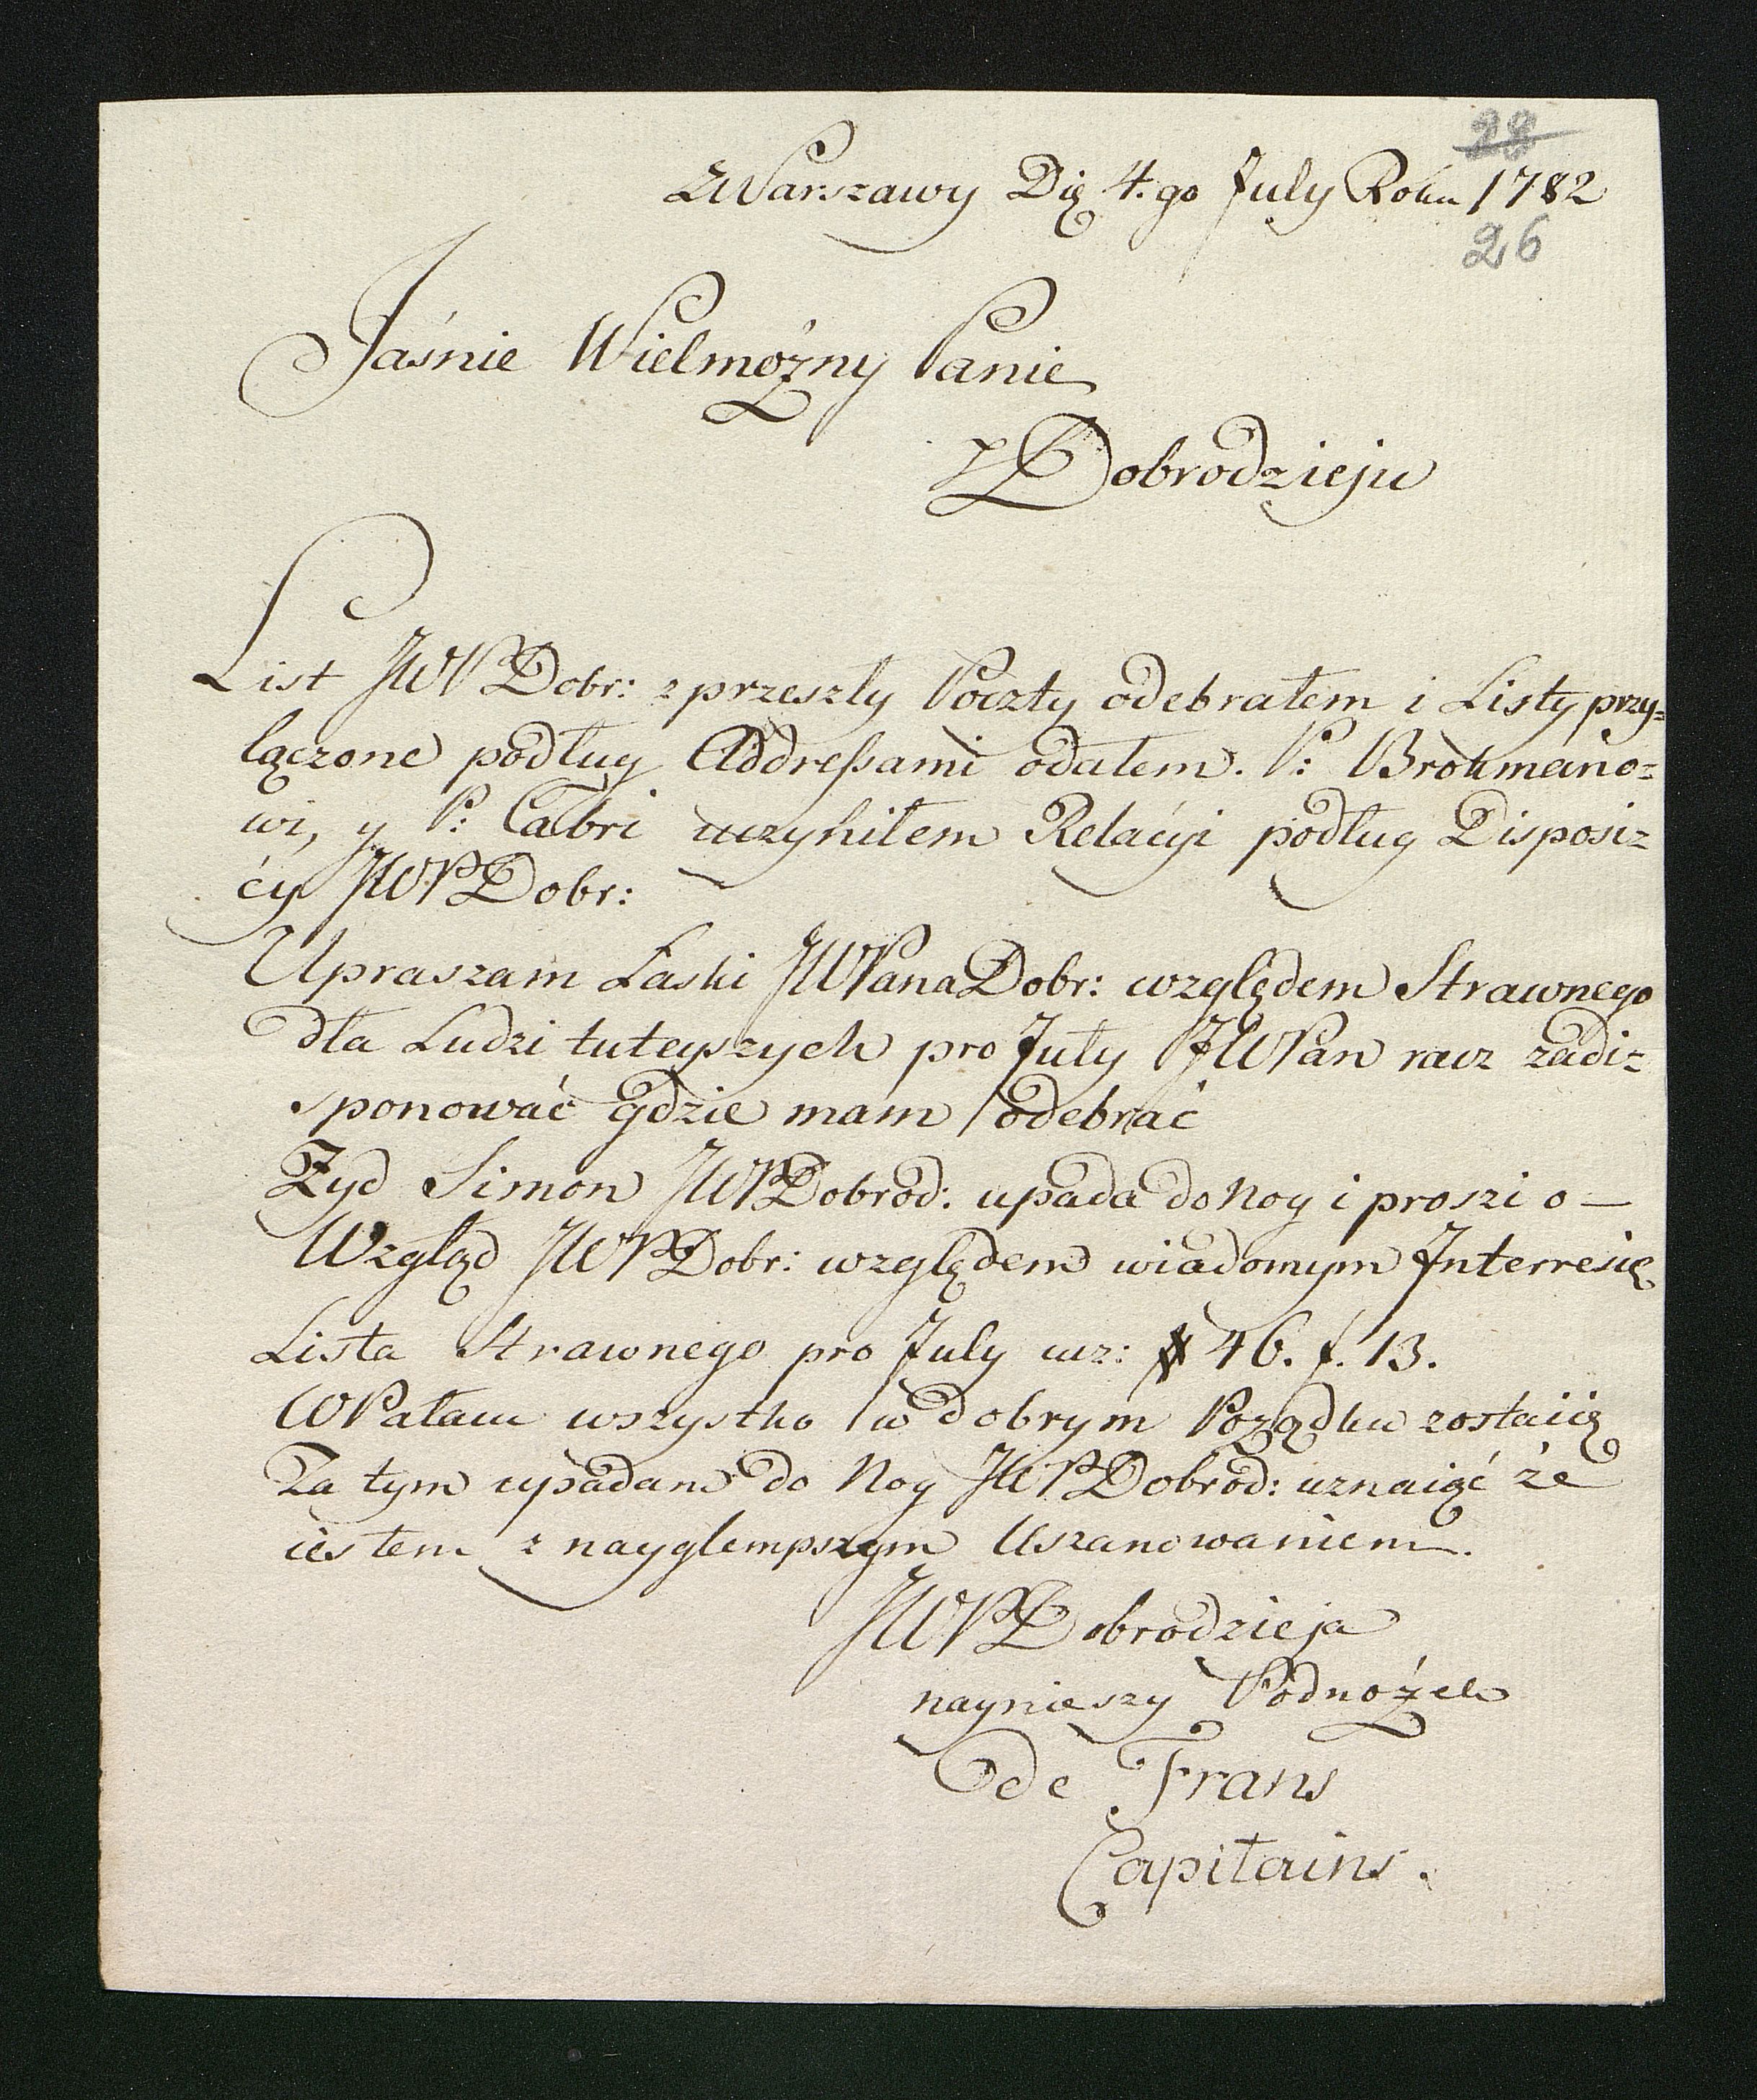 28
ZWarszawy Dię 4.go July Roku 1782
26
Jaśnie Wielmożny Panie
Dobrodzieju
List JWPDobr: z przeszly Poczty odebrałem i Listy przy=
łączone podług Addressami odałem. P: Brokmano=
wi, y P: Cabri uczyniłem Relacyi podług Disposi=
cy JWPDobr:
Upraszam Łaski JWPanaDobr: względem Strawnego
dla Ludzi tuteyszych pro July JWPan racz zadi=
sponować gdzie mam odebrać
Żyd Simon JWPDobrod: upada do Nog i proszi o —
Wzgląd JWPDobr: względem wiadomym Interresię
Lista Strawnego pro July wz: # 46. f. 13.
WPałacu wszystko w dobrym Poządku zostaiię
Za tym upadam do Nog JWPDobrod: uznaiąć że
iestem z nayglempszym Uszanowaniem.
JWPDobrodzieja
naynieszy Podnożek
de Frans
Capitains.